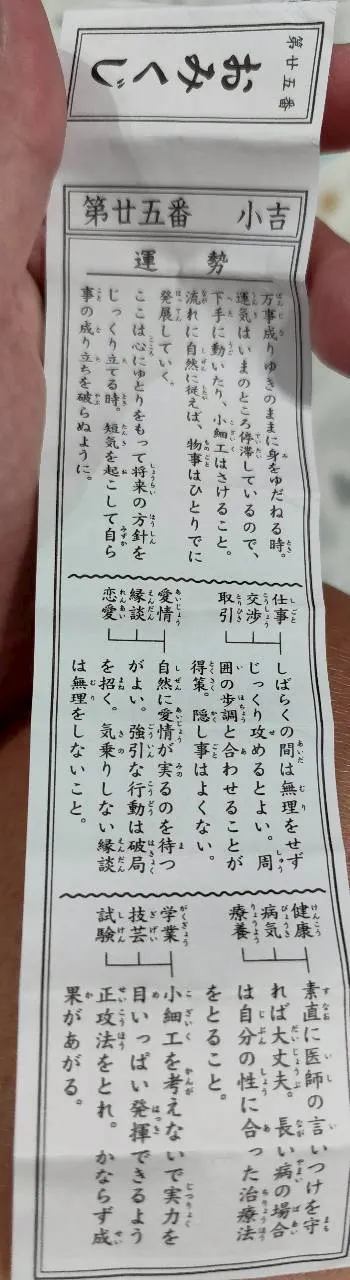 第廿五番
おみくじ
第廿五番　小吉
運勢
万事成りゆきのままに身をゆだねる時。
運気はいまのところ停滞しているので、
下手に動いたり、小細工はさけること。
流れに自然に従えば、物事はひとりでに
発展していく。
ここは心にゆとりをもって将来の方針を
じっくり立てる時。短気を起こして自ら
事の成り立ちを破らぬように。
仕事
交渉
取引
しばらくの間は無理をせず
じっくり攻めるとよい。周
囲の歩調と合わせることが
得策。隠し事はよくない。
愛情
縁談
恋愛
自然に愛情が実るのを待つ
がよい。強引な行動は破局
を招く。気乗りしない縁談
は無理をしないこと。
健康
病気
療養
素直に医師の言いつけを守
れば大丈夫。長い病の場合
は自分の性に合った治療法
をとること。
学業
技芸
試験
小細工を考えないで実力を
目いっぱい発揮できるよう
正攻法をとれ。かならず成
果があがる。